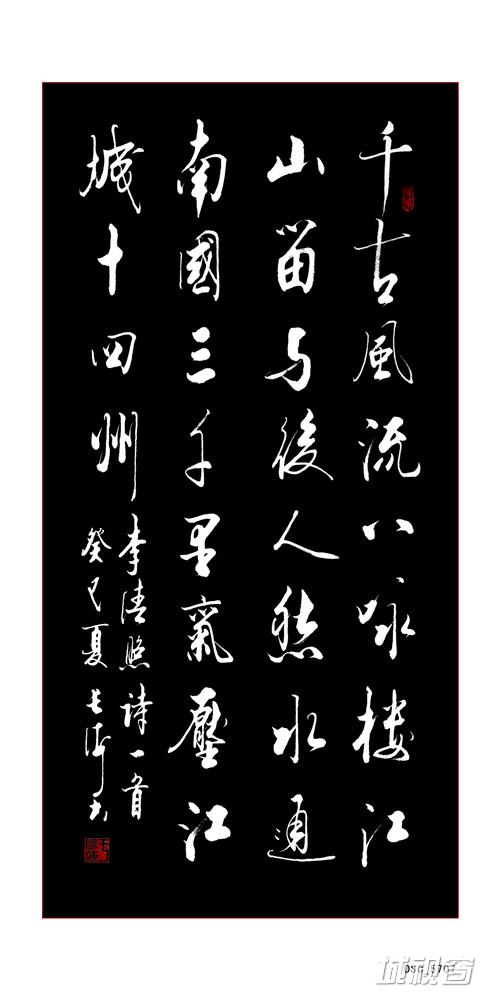 千古風流八咏楼江
山留与後人愁水通
南國三千里氣壓江
城十四州
李清照诗一首
癸巳夏
城视窗